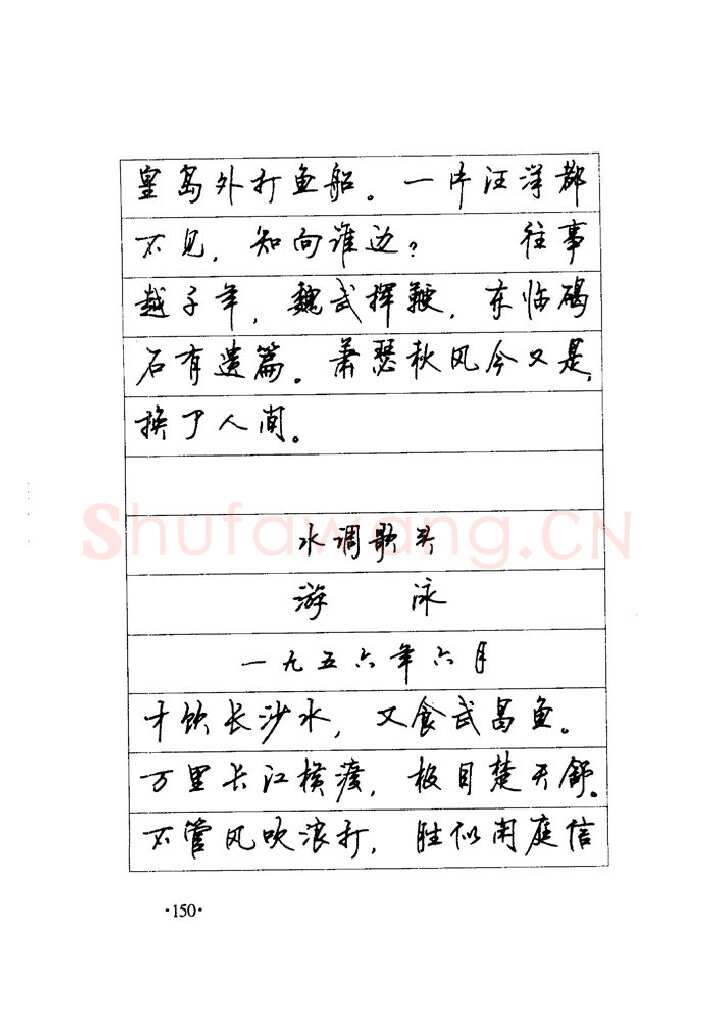 皇岛外打鱼船。一片汪洋都
不见，知向谁边？　　往事
越千年，魏武挥鞭，东临碣
石有遗篇。萧瑟秋风今又是，
换了人间。
Shufawang.CN
水调歌头
游　泳
一九五六年六月
才饮长沙水，又食武昌鱼。
万里长江横渡，极目楚天舒。
不管风吹浪打，胜似闲庭信
·150·